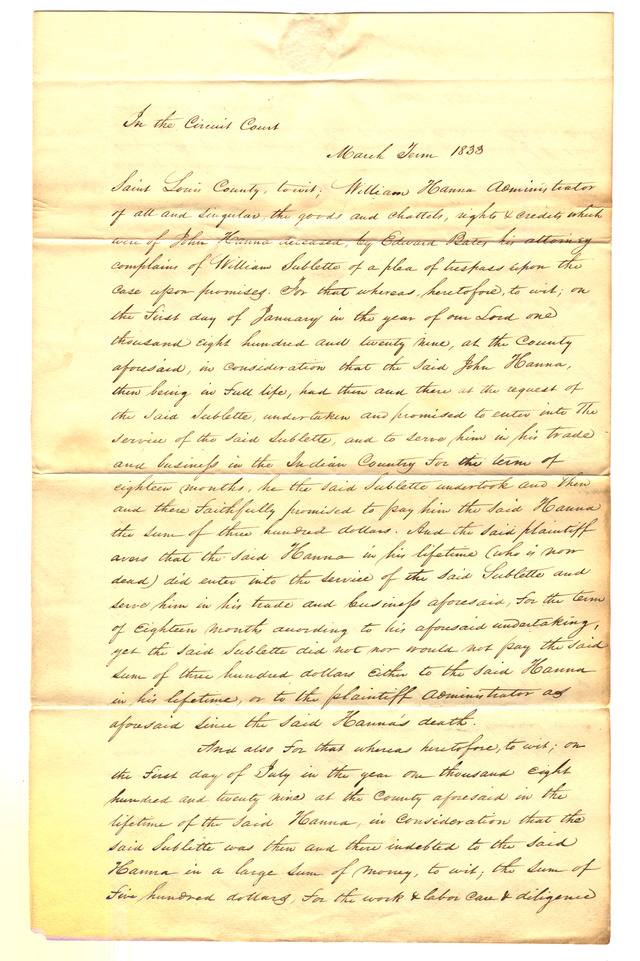 In the Circuit Court
March Term 1833
Saint Louis County, towit; William Hanna Administrator
of all and singular, the goods and chattels, rights & credits which
were of John Hanna deceased, by Edward Bates his attorney
complains of William Sublette of a plea of trespass upon the
case upon promises. For that whereas, heretofore, to wit; on
the First day of January in the year of our Lord one
thousand eight hundred and twenty nine, at the County
aforesaid, in consideration that the said John Hanna,
then being in Full life, had then and there at the request of
the said Sublette, undertaken and promised to enter into The
service of the said Sublette, and to serve him in his trade
and business in the Indian Country For the term of
eighteen months, he the said Sublette undertook and then
and there Faithfully promised to pay him the said Hanna
the sum of three hundred dollars. And the said plaintiff
avers that the said Hanna in his lifetime (who is now
dead) did enter into the service of the said Sublette and
serve him in his trade and business aforesaid, For the term
of Eighteen months acording to his aforesaid undertaking,
yet the said Sublette did not nor would not pay the said
sum of three hundred dollars either to the said Hanna
in his lifetime, or to the plaintiff Administrator as
aforesaid since the said Hanna's death.
And also For that whereas heretofore, to wit; on
the First day of July in the year one thousand eight
hundred and twenty nine at the County aforesaid in the
lifetime of the said Hanna, in Consideration that the
said Sublette was then and there indebted to the said
Hanna in a large sum of money, to wit; the sum of
Five hundred dollars, For the work & labor care & diligence